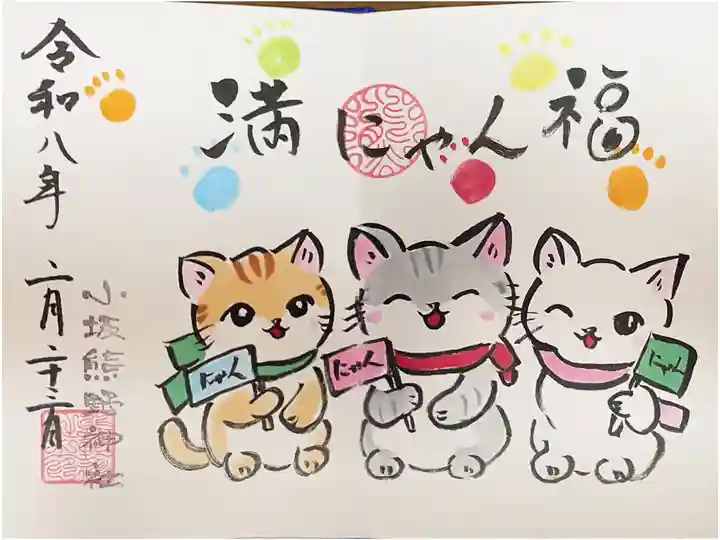 満にゃん福
令和八年 二月二十二日
小坂熊野神社
にゃん
にゃん
にゃん